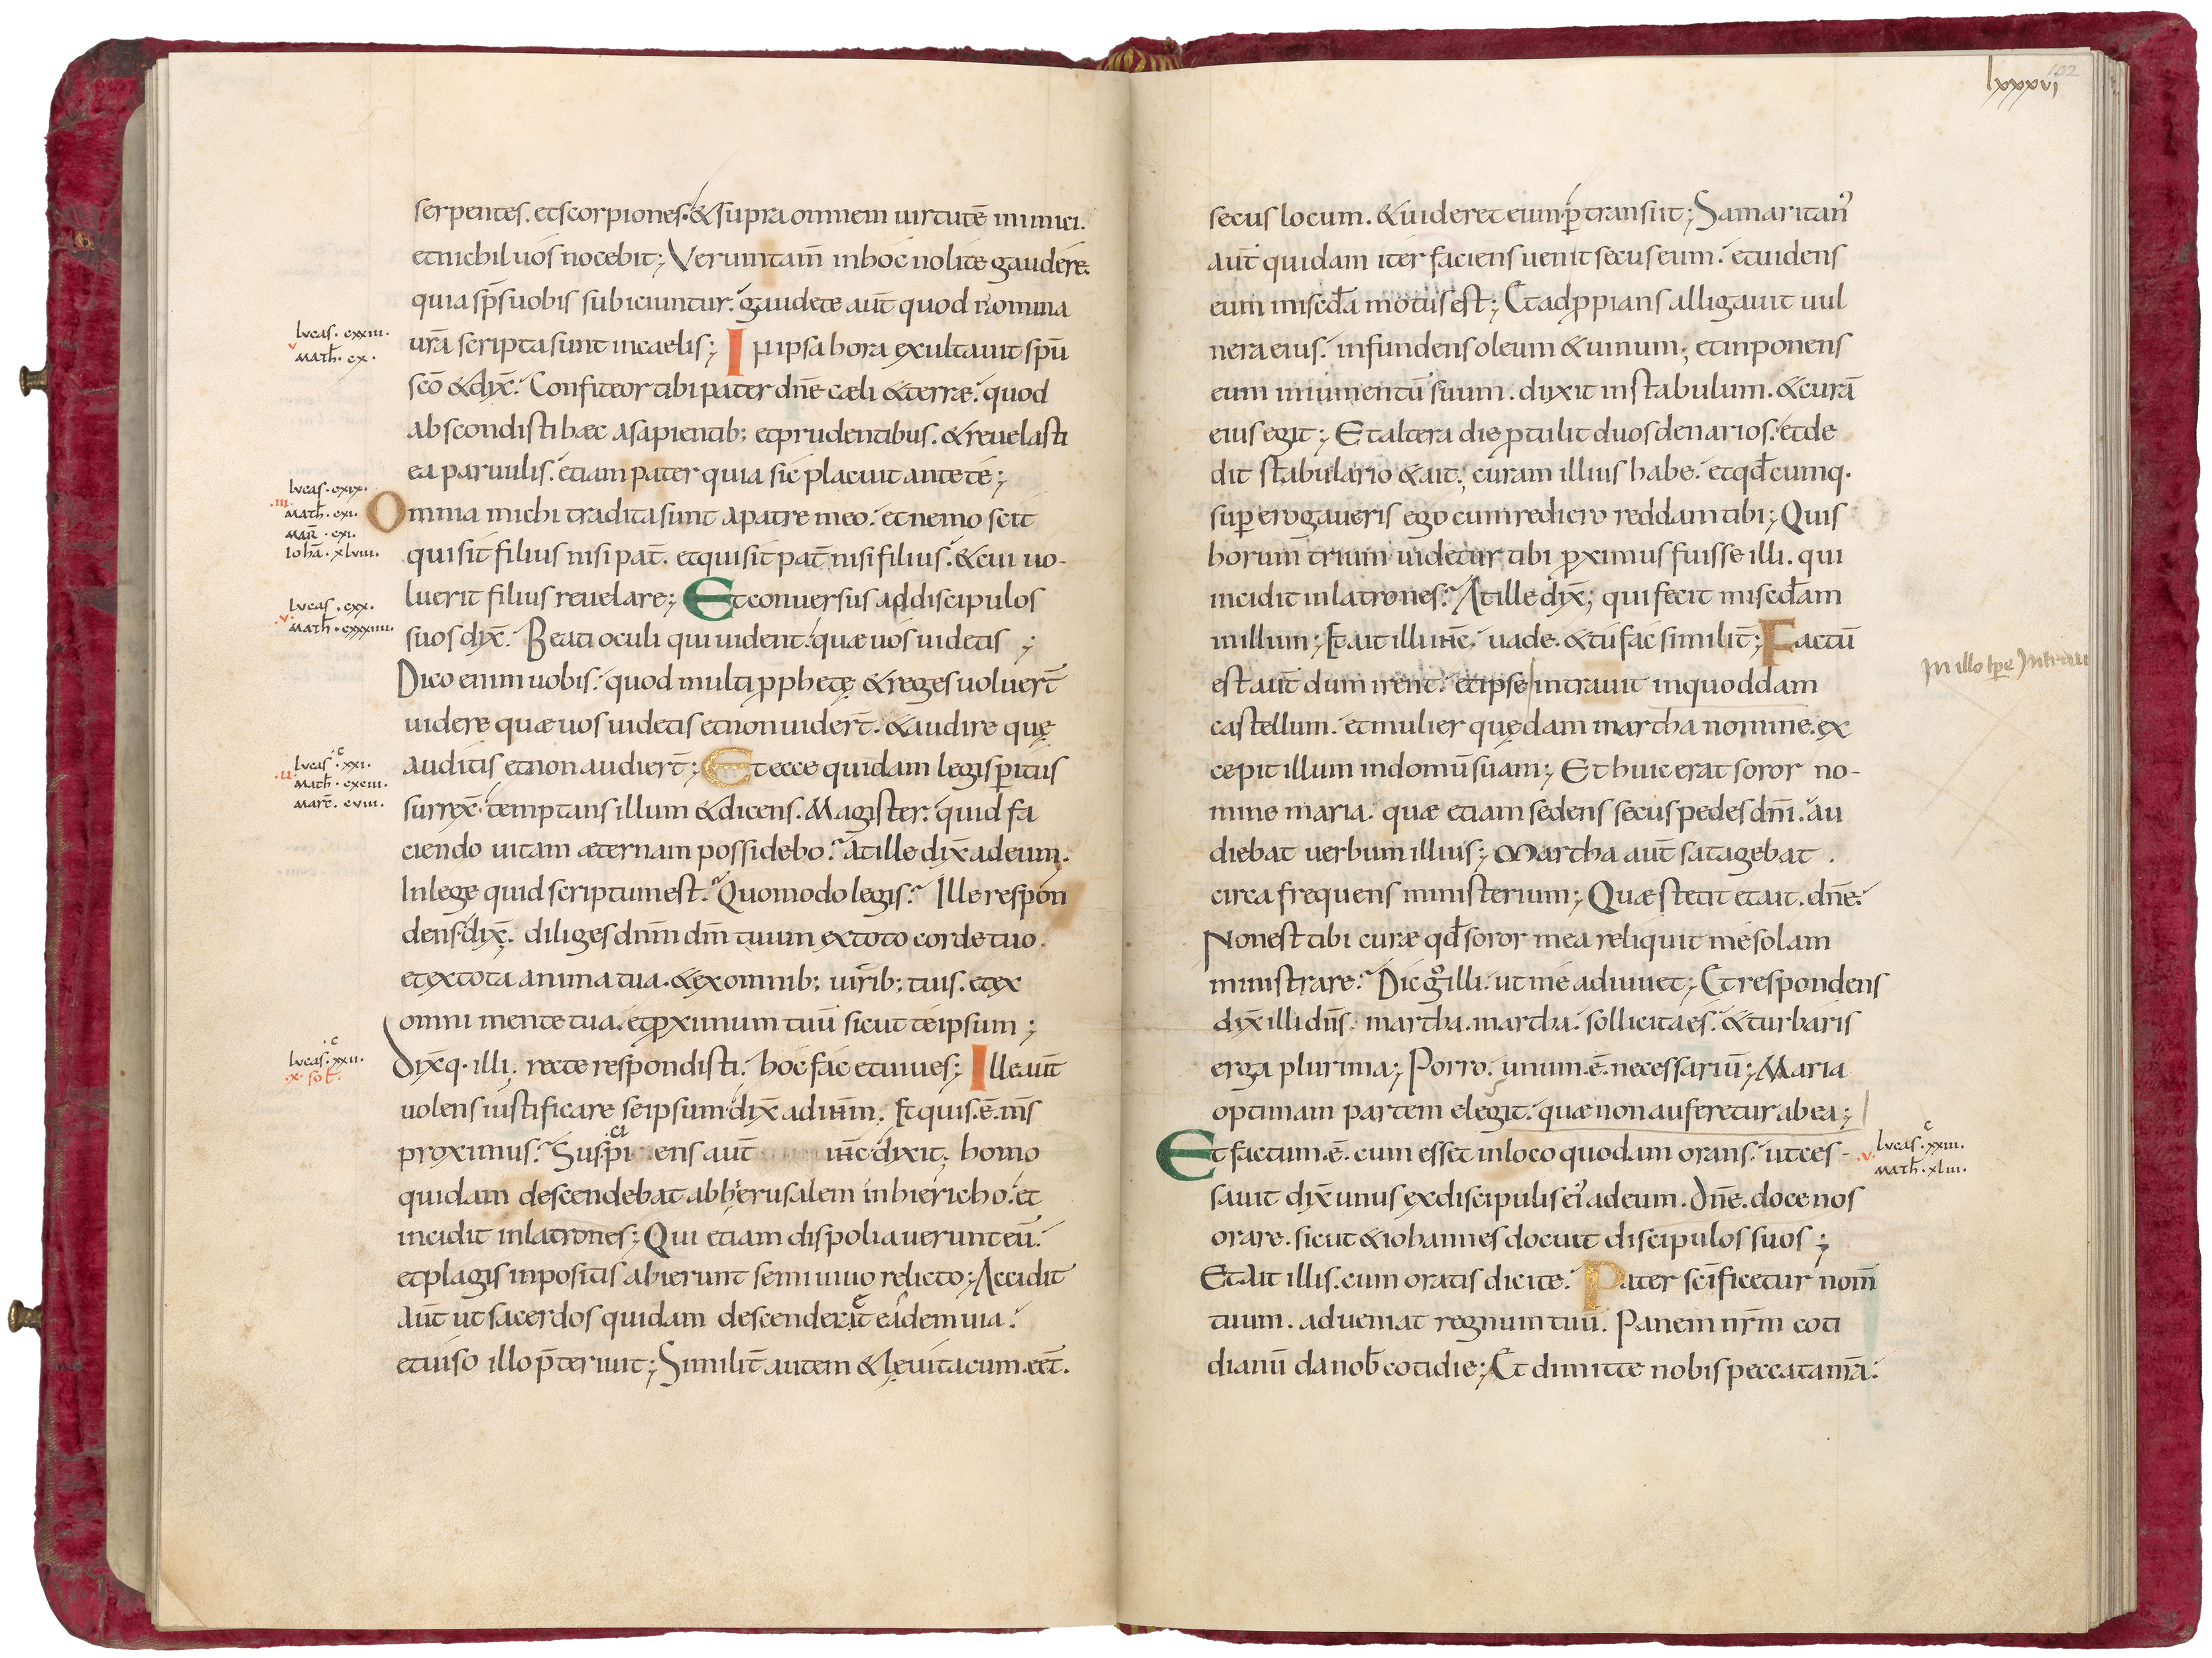 serpentes. et scorpiones. & supra omnem uirtutē inimici.
et nichil uos nocebit; Veruntam̄ in hoc nolite gaudere.
quia sp̄s uobis subiciuntur. gaudete aut̄ quod nomina
ur̄a scripta sunt in caelis; In ipsa hora exultauit sp̄u
sc̄o & dix̄. Confiteor tibi pater dn̄e cæli & terræ. quod
abscondisti hæc a sapientib; et prudentibus. & reuelasti
ea paruulis. etiam pater quia sic placuit ante te;
Omnia michi tradita sunt a patre meo. et nemo scit
qui sit filius nisi pat̄. et qui sit pat̄ nisi filius. & cui uo-
luerit filius reuelare; Et conuersus ad discipulos
suos dix̄. Beati oculi qui uident. quæ uos uidetis ;
Dico enim uobis. quod multi pphetę & reges uoluer̄t
uidere quæ uos uidetis et non uider̄t. & audire quę
auditis et non audier̄t; Et ecce quidam legisperitus
surrex̄. temptans illum & dicens. Magister. quid fa
ciendo uitam æternam possidebo? at ille dix̄ ad eum.
In lege quid scriptum est? Quomodo legis? Ille respon
dens dix̄. diliges dn̄m dm̄ tuum ex toto corde tuo.
et ex tota anima tua. & ex omnib; uirib; tuis. et ex
omni mente tua. et pximum tuū sicut te ipsum ;
Dix̄q. illi. recte respondisti. hoc fac et uiues; Ille aut̄
uolens iustificare se ipsum dix̄ ad ih̄m. Et quis. ē. m̄s
proximus? Suspiciens aut̄ ih̄c dixit; homo
quidam descendebat ab hierusalem in hiericho. et
incidit in latrones; Qui etiam dispoliauerunt eū.
et plagis inpositis abierunt semiuiuo relicto; Accidit
aut̄ ut sacerdos quidam descenderet eadem uia.
et uiso illo p̄teriuit; Similit̄ autem & leuita cum. eēt.
lucas. cxviii.
v math̄. cx.
lucas. cxix.
.iii. math̄. cxi.
mar̄. cxi.
iohā. xlviii.
lucas. cxx.
.v. math̄. cxxxiiii.
lucas. cxxi.
.ii. math̄. cxciii.
marc̄. cviii.
lucas. cxxii.
.x. sol̄.
lxxxvi
102
secus locum. & uideret eum. ptransiit; Samaritan9
aut̄ quidam iter faciens uenit secus eum. et uidens
eum misc̄da motus est; Et adppians alligauit uul
nera eius. infundens oleum & uinum; et inponens
eum in iumentū suum. duxit in stabulum. & curā
eius egit; Et altera die ptulit duos denarios. et de
dit stabulario & ait; curam illius habe. et qd̄cumq.
superogaueris ego cum rediero reddam tibi; Quis
horum trium uidetur tibi pximus fuisse illi. qui
incidit in latrones? At ille dix̄; qui fecit misc̄dam
in illum; Et ait illi ih̄c. uade. & tu fac similit̄; Factū
est aut̄ dum irent. et ipse intrauit in quoddam
castellum. et mulier quędam martha nomine. ex
cepit illum in domū suam; Et huic erat soror no-
mine maria. quæ etiam sedens secus pedes dn̄i. au
diebat uerbum illius; Martha aut̄ satagebat .
circa frequens ministerium; Quæ stetit et ait. dn̄e.
Non est tibi curæ qd̄ soror mea reliquit me solam
ministrare? Dic g̊ illi. ut me adiuuet; Et respondens
dix̄ illi dn̄s. martha. martha. sollicita es. & turbaris
erga plurima; Porro. unum. ē. necessariū; Maria
optimam partem elegit. quæ non auferetur ab ea;
Et factum. ē. cum esset in loco quodam orans. ut ces-
sauit dix̄ unus ex discipulis ei9 ad eum. Dn̄e. doce nos
orare. sicut & iohannes docuit discipulos suos ;
Et ait illis. cum oratis dicite. Pater sc̄ificetur nom̄
tuum. adueniat regnum tuū. Panem nr̄m coti
dianū da nob̄ cotidie; Et dimitte nobis peccata nr̄a.
In illo tp̄e Intraui
lucas. cxxiii.
.v. math̄. xliii.